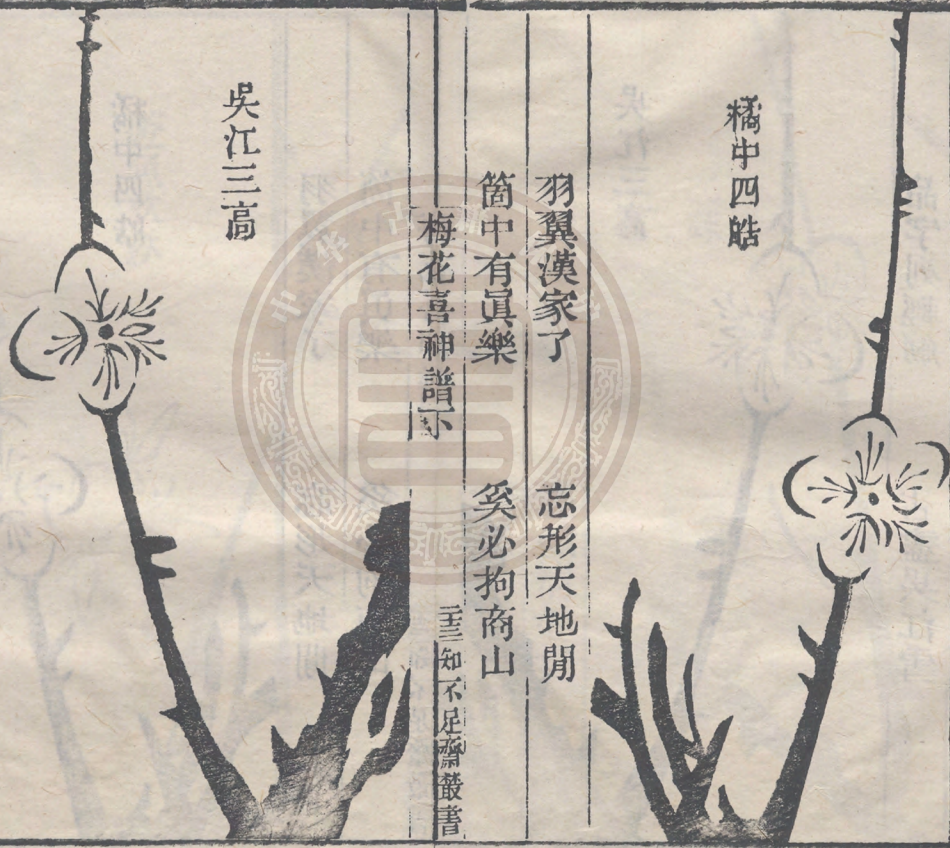 橘中四皓
羽翼漢家了　忘形天地閒
箇中有眞樂　奚必拘商山
梅花喜神譜下
二十三
知不足齋叢書
吳江三高